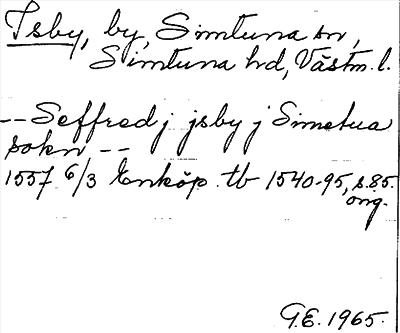 Isby, by, Simtuna sn,
Simtuna hd, Västm. l.
-- Seffred j jsby j Simetua
sokn --
1557 6/3 Enköp. tb 1540-95, s. 85.
orig.
G.E. 1965.